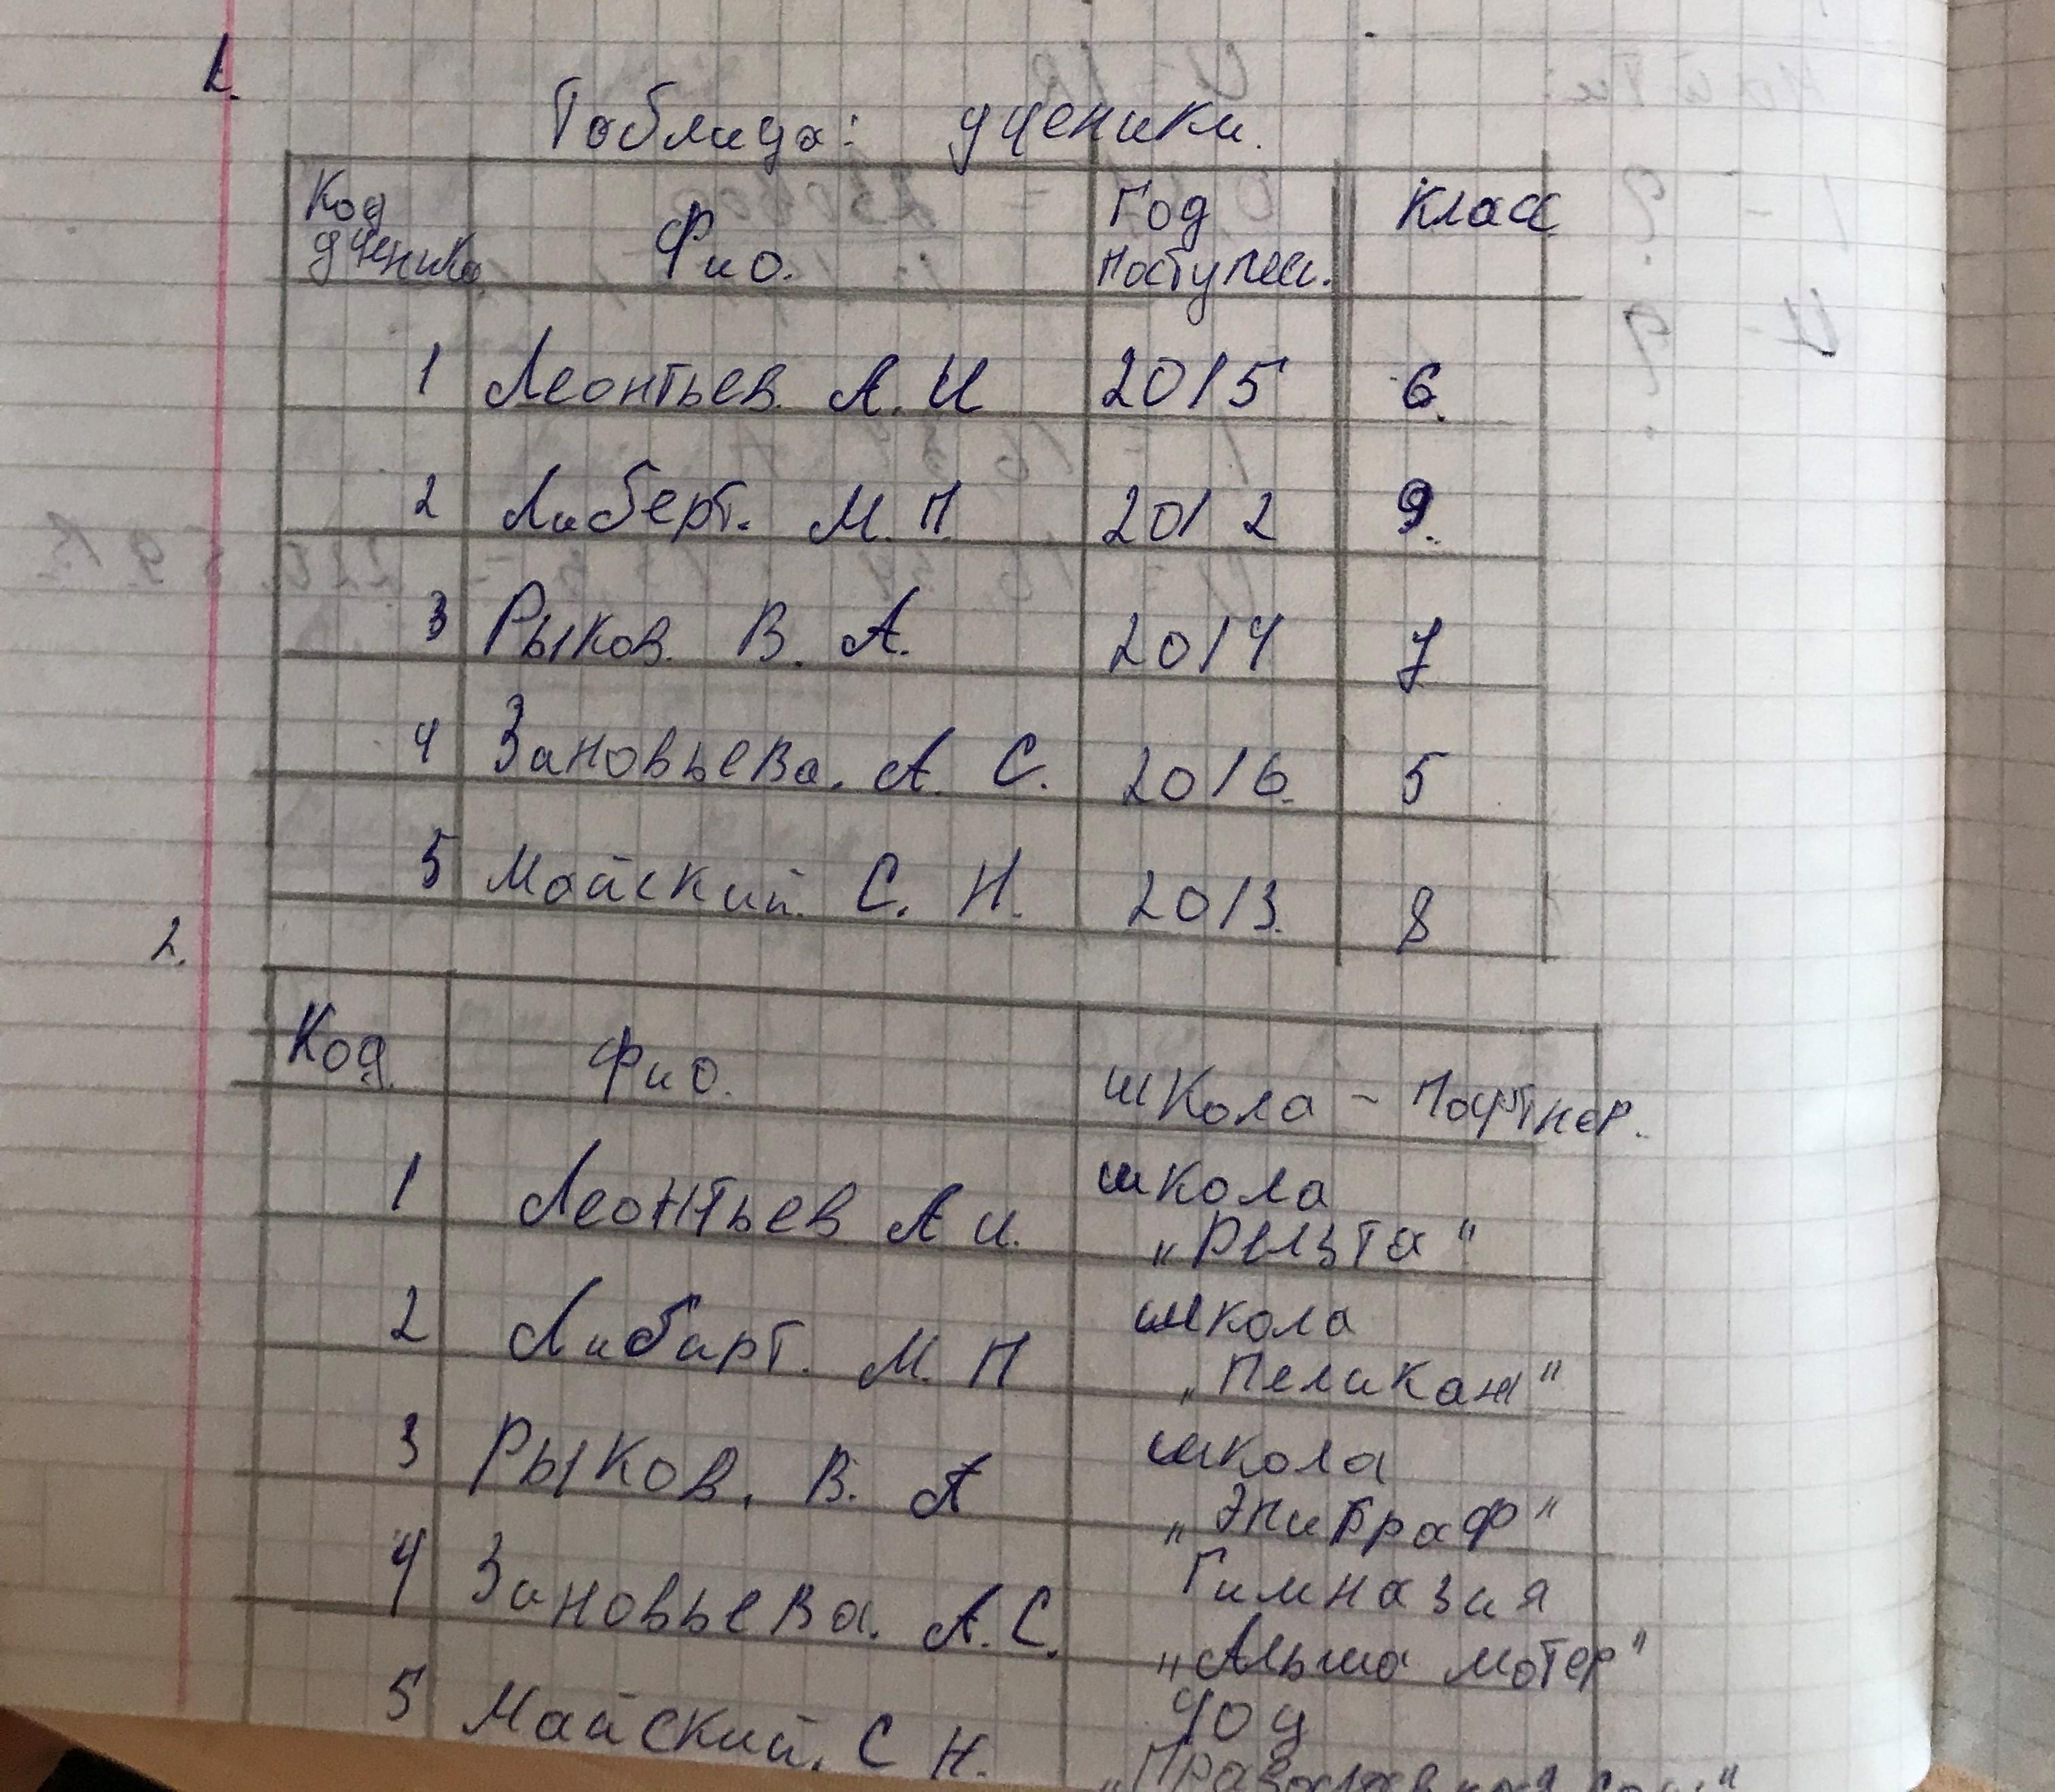 1.
Таблица: ученики.
Код ученика Фио. Год поступлен. Класс
1 Леонтьев. А. И 2015 6.
2 Либерт. М. П. 2012 9.
3 Рыков. В. А. 2014 7
4 Зиновьева. А. С. 2016. 5
5 Майский. С. Н. 2013. 8
2.
Код Фио. школа - Партнер.
1 Леонтьев А И. школа
"
2 Либарт. М. П школа
"Пеликан"
3 Рыков. В. А школа
"Эпиграф"
4 Зиновьева. А. С. Гимназия
"Альма матер"
5 Майский. С Н. ЧОУ